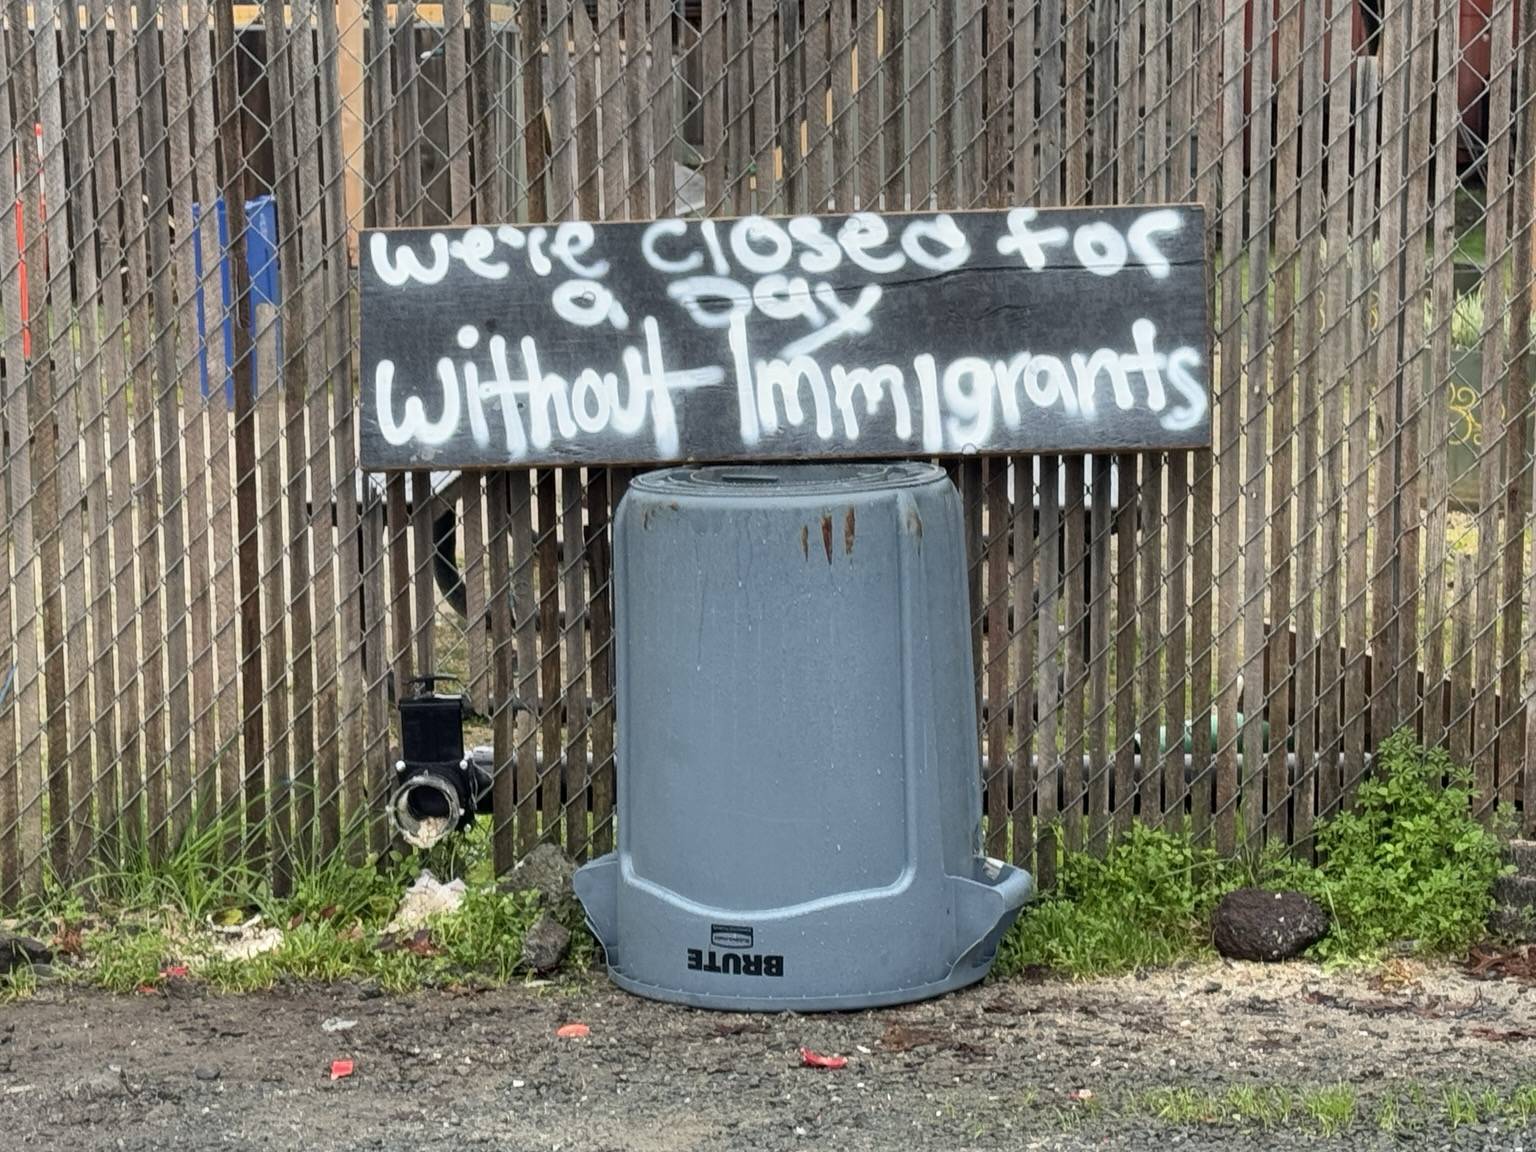 we're closed for
a Day
Without Immigrants
BRUTE